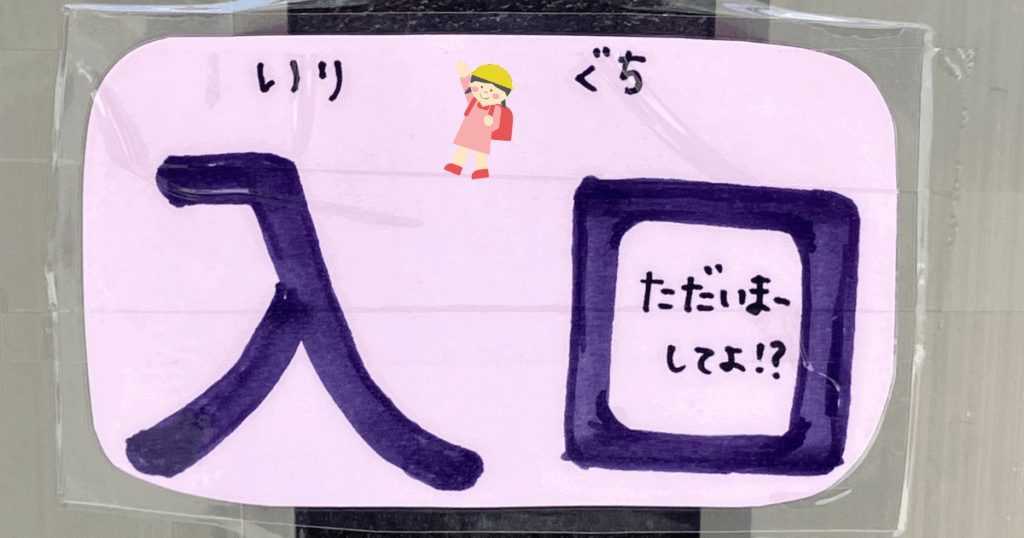 いり ぐち
入口
ただいまー
してよ!?